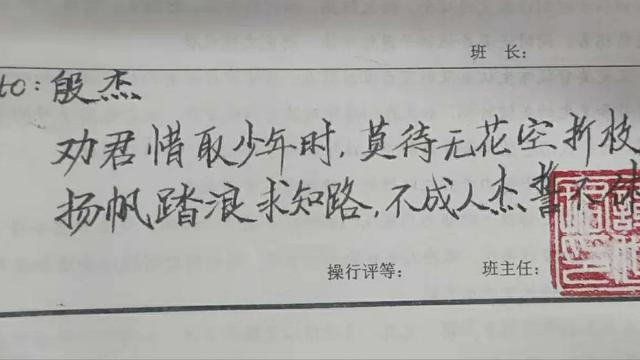 班 长:
to: 殷杰
劝君惜取少年时,莫待无花空折枝
扬帆踏浪求知路,不成人杰誓不休
操行评等:
班主任: